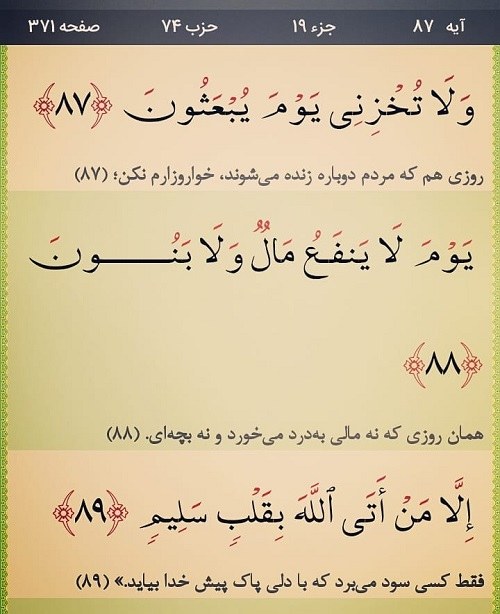 آیه ۸۷ جزء ۱۹ حزب ۷۴ صفحه ۳۷۱
وَلَا تُخْزِنِی یَوْمَ یُبْعَثُونَ ﴿۸۷﴾
روزی هم که مردم دوباره زنده می‌شوند، خواروزارم نکن؛ (۸۷)
یَوْمَ لَا یَنفَعُ مَالٌ وَلَا بَنُـــــونَ
﴿۸۸﴾
همان روزی که نه مالی به‌درد می‌خورد و نه بچه‌ای. (۸۸)
إِلَّا مَنْ أَتَى ٱللَّهَ بِقَلْبٍ سَلِیمٍ ﴿۸۹﴾
فقط کسی سود می‌برد که با دلی پاک پیش خدا بیاید.» (۸۹)